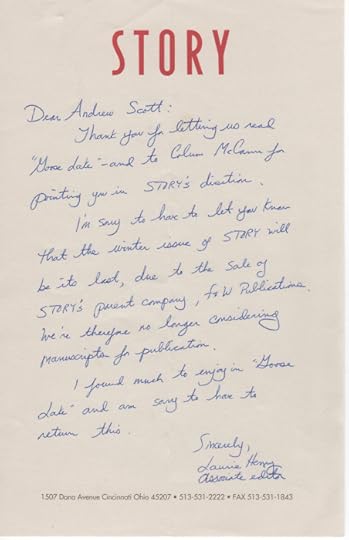 STORY
Dear Andrew Scott:
Thank you for letting us read
"Goose Lake" – and to Colum McCann for
pointing you in STORY's direction.
I'm sorry to have to let you know
that the winter issue of STORY will
be its last, due to the sale of
STORY's parent company, F&W Publications.
We're therefore no longer considering
manuscripts for publication.
I found much to enjoy in "Goose
Lake" and am sorry to have to
return this.
Sincerely,
Laurie Henry
associate editor
1507 Dana Avenue Cincinnati Ohio 45207 • 513-531-2222 • FAX 513-531-1843